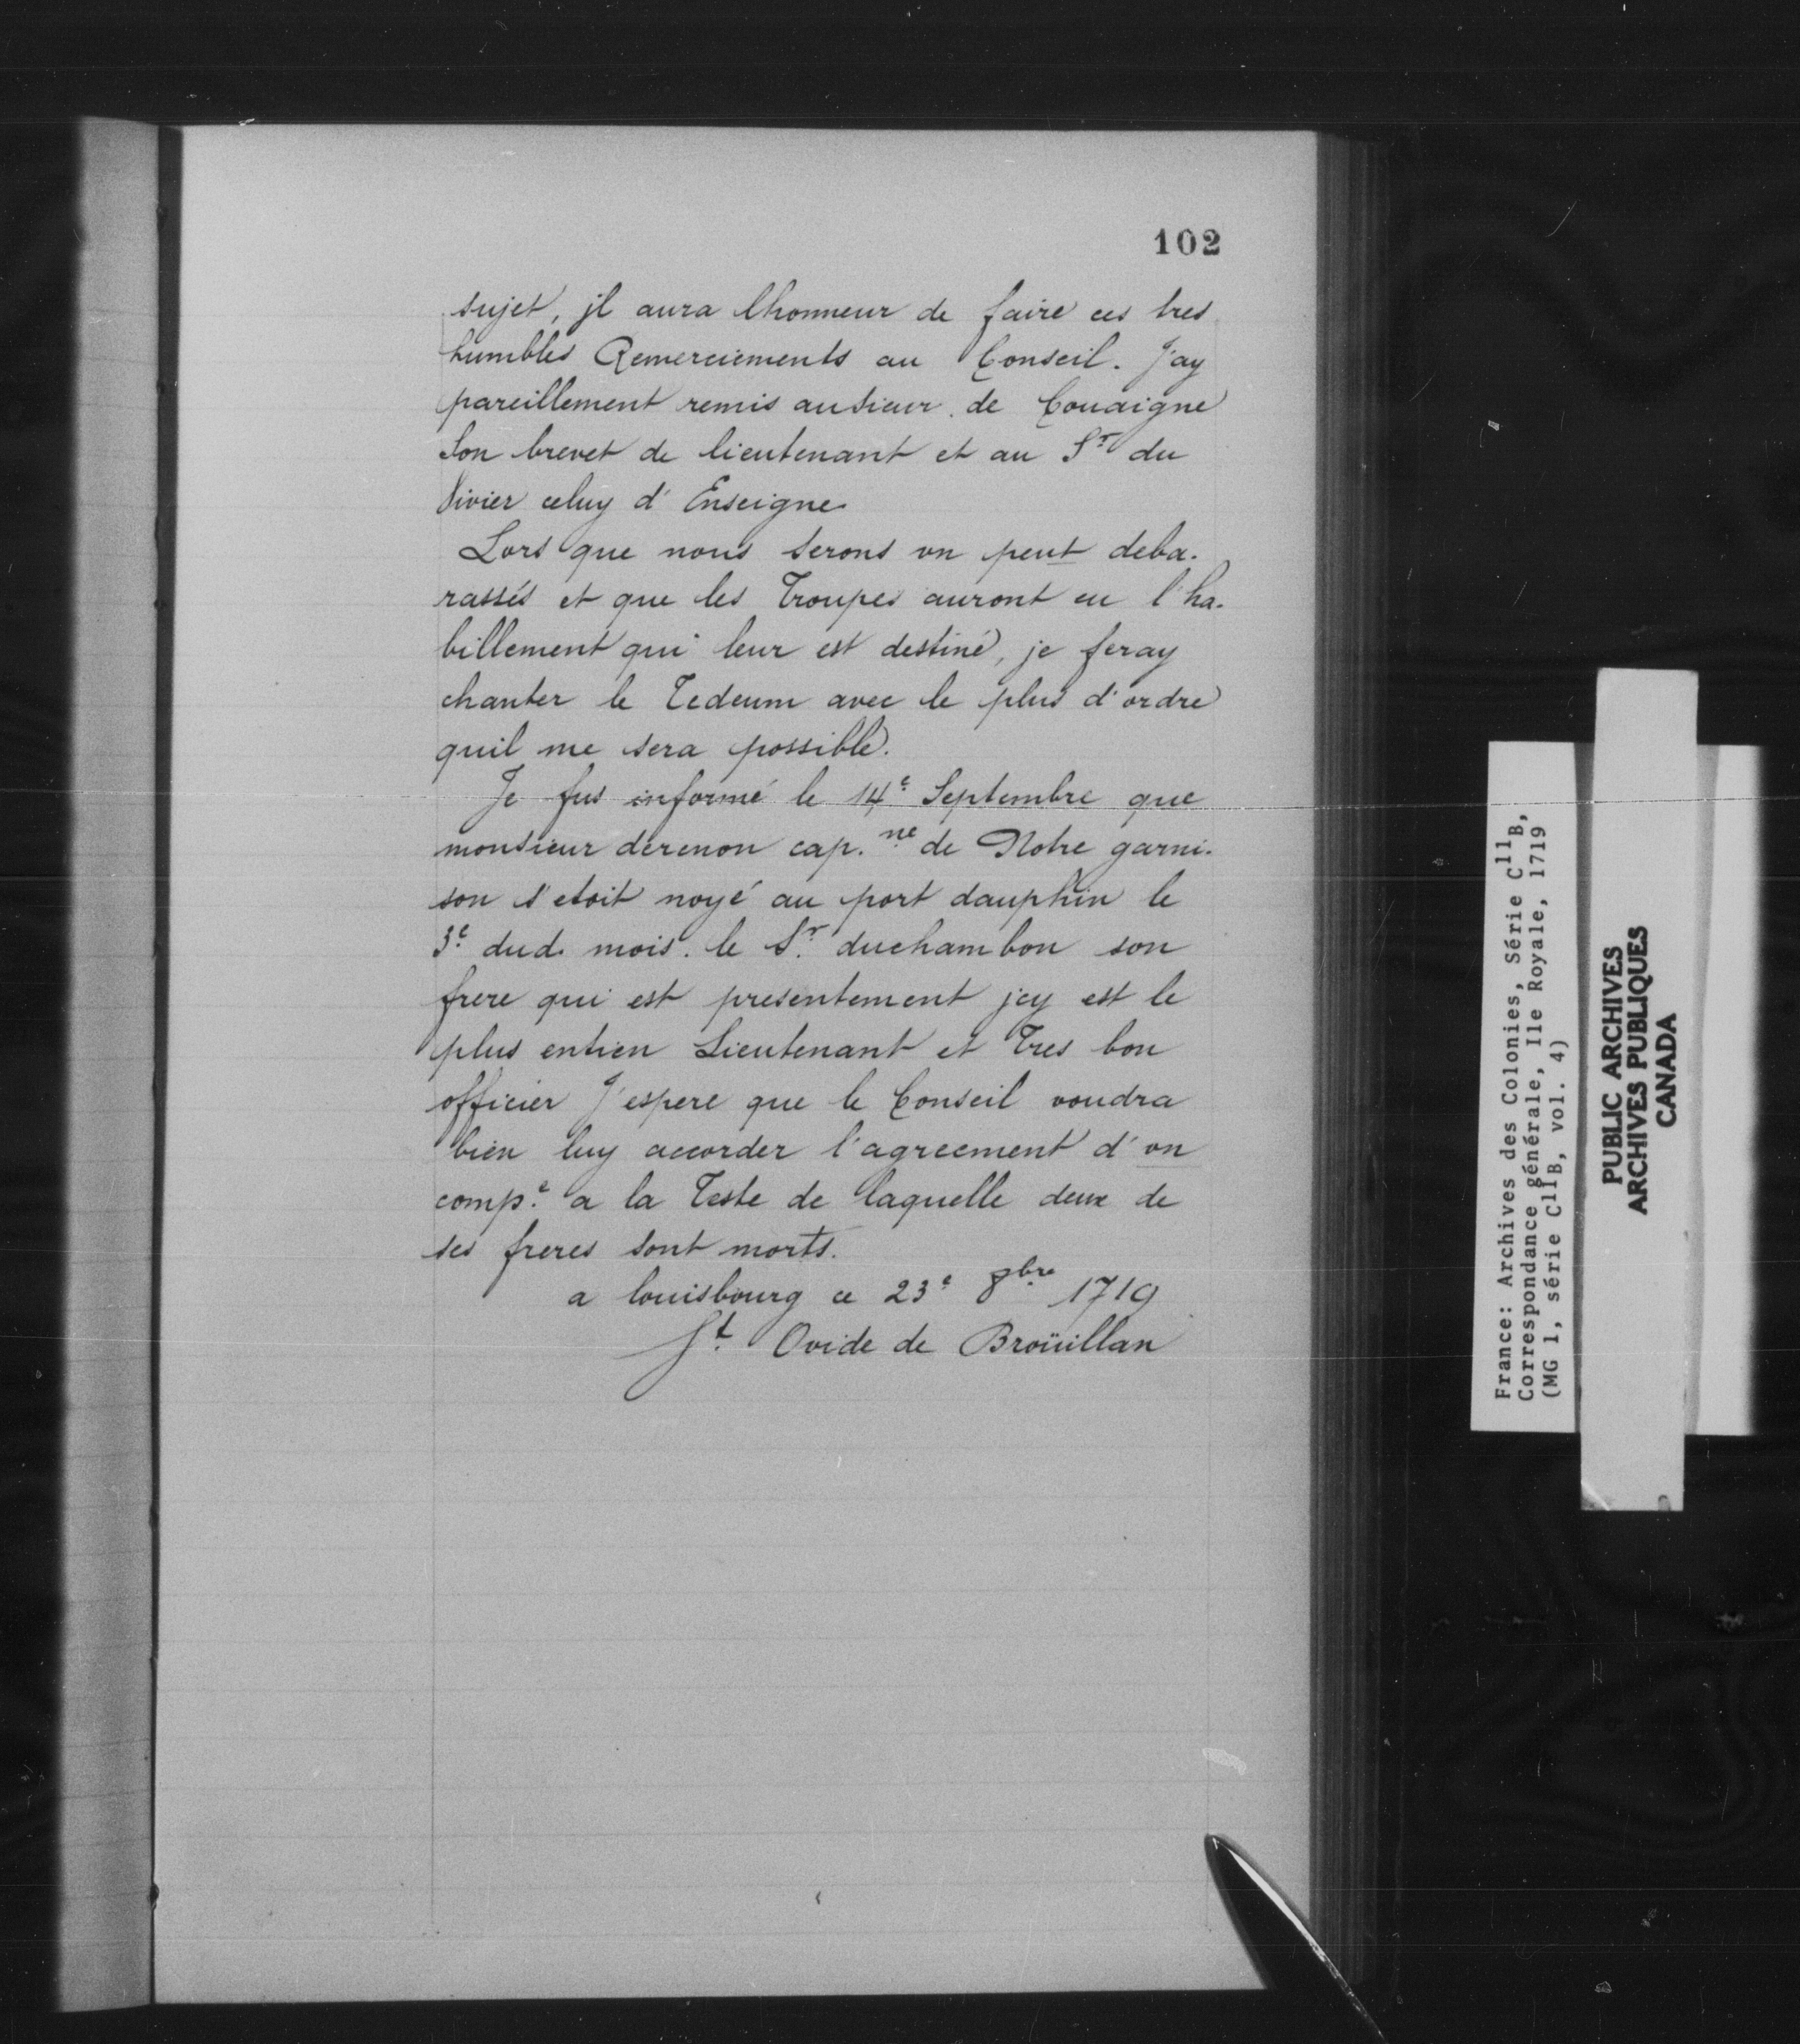 102
sujet, jl aura lhonneur de faire ces tres
humbles Remerciements au Conseil. J'ay
pareillement remis ausieur de Couaigne
Son brevet de lieutenant et au Sr. du
Vivier celuy d'Enseigne
Lors que nous serons un peut deba-
rassés et que les Troupes auront eu l'ha-
billement qui leur est destiné, je feray
chanter le Tedeum avec le plus d'ordre
quil me sera possible.
Je fus informé le 14e Septembre que
monsieur derenon cap.ne de Notre garni-
son s'etoit noyé au port dauphin le
3e dud. mois. le Sr. duchambon son
frere qui est presentement jcy est le
plus entien Lieutenant et Tres bon
officier J'espere que le Conseil voudra
bien luy accorder l'agreement d'un
comp.e a la Teste de laquelle deux de
ses freres sont morts.
a louisbourg ce 23e 8bre 1719
St. Ovide de Broüillan
France: Archives des Colonies, Série C11B,
Correspondance générale, Ile Royale, 1719
(MG 1, série C11B, vol. 4)
PUBLIC ARCHIVES
ARCHIVES PUBLIQUES
CANADA